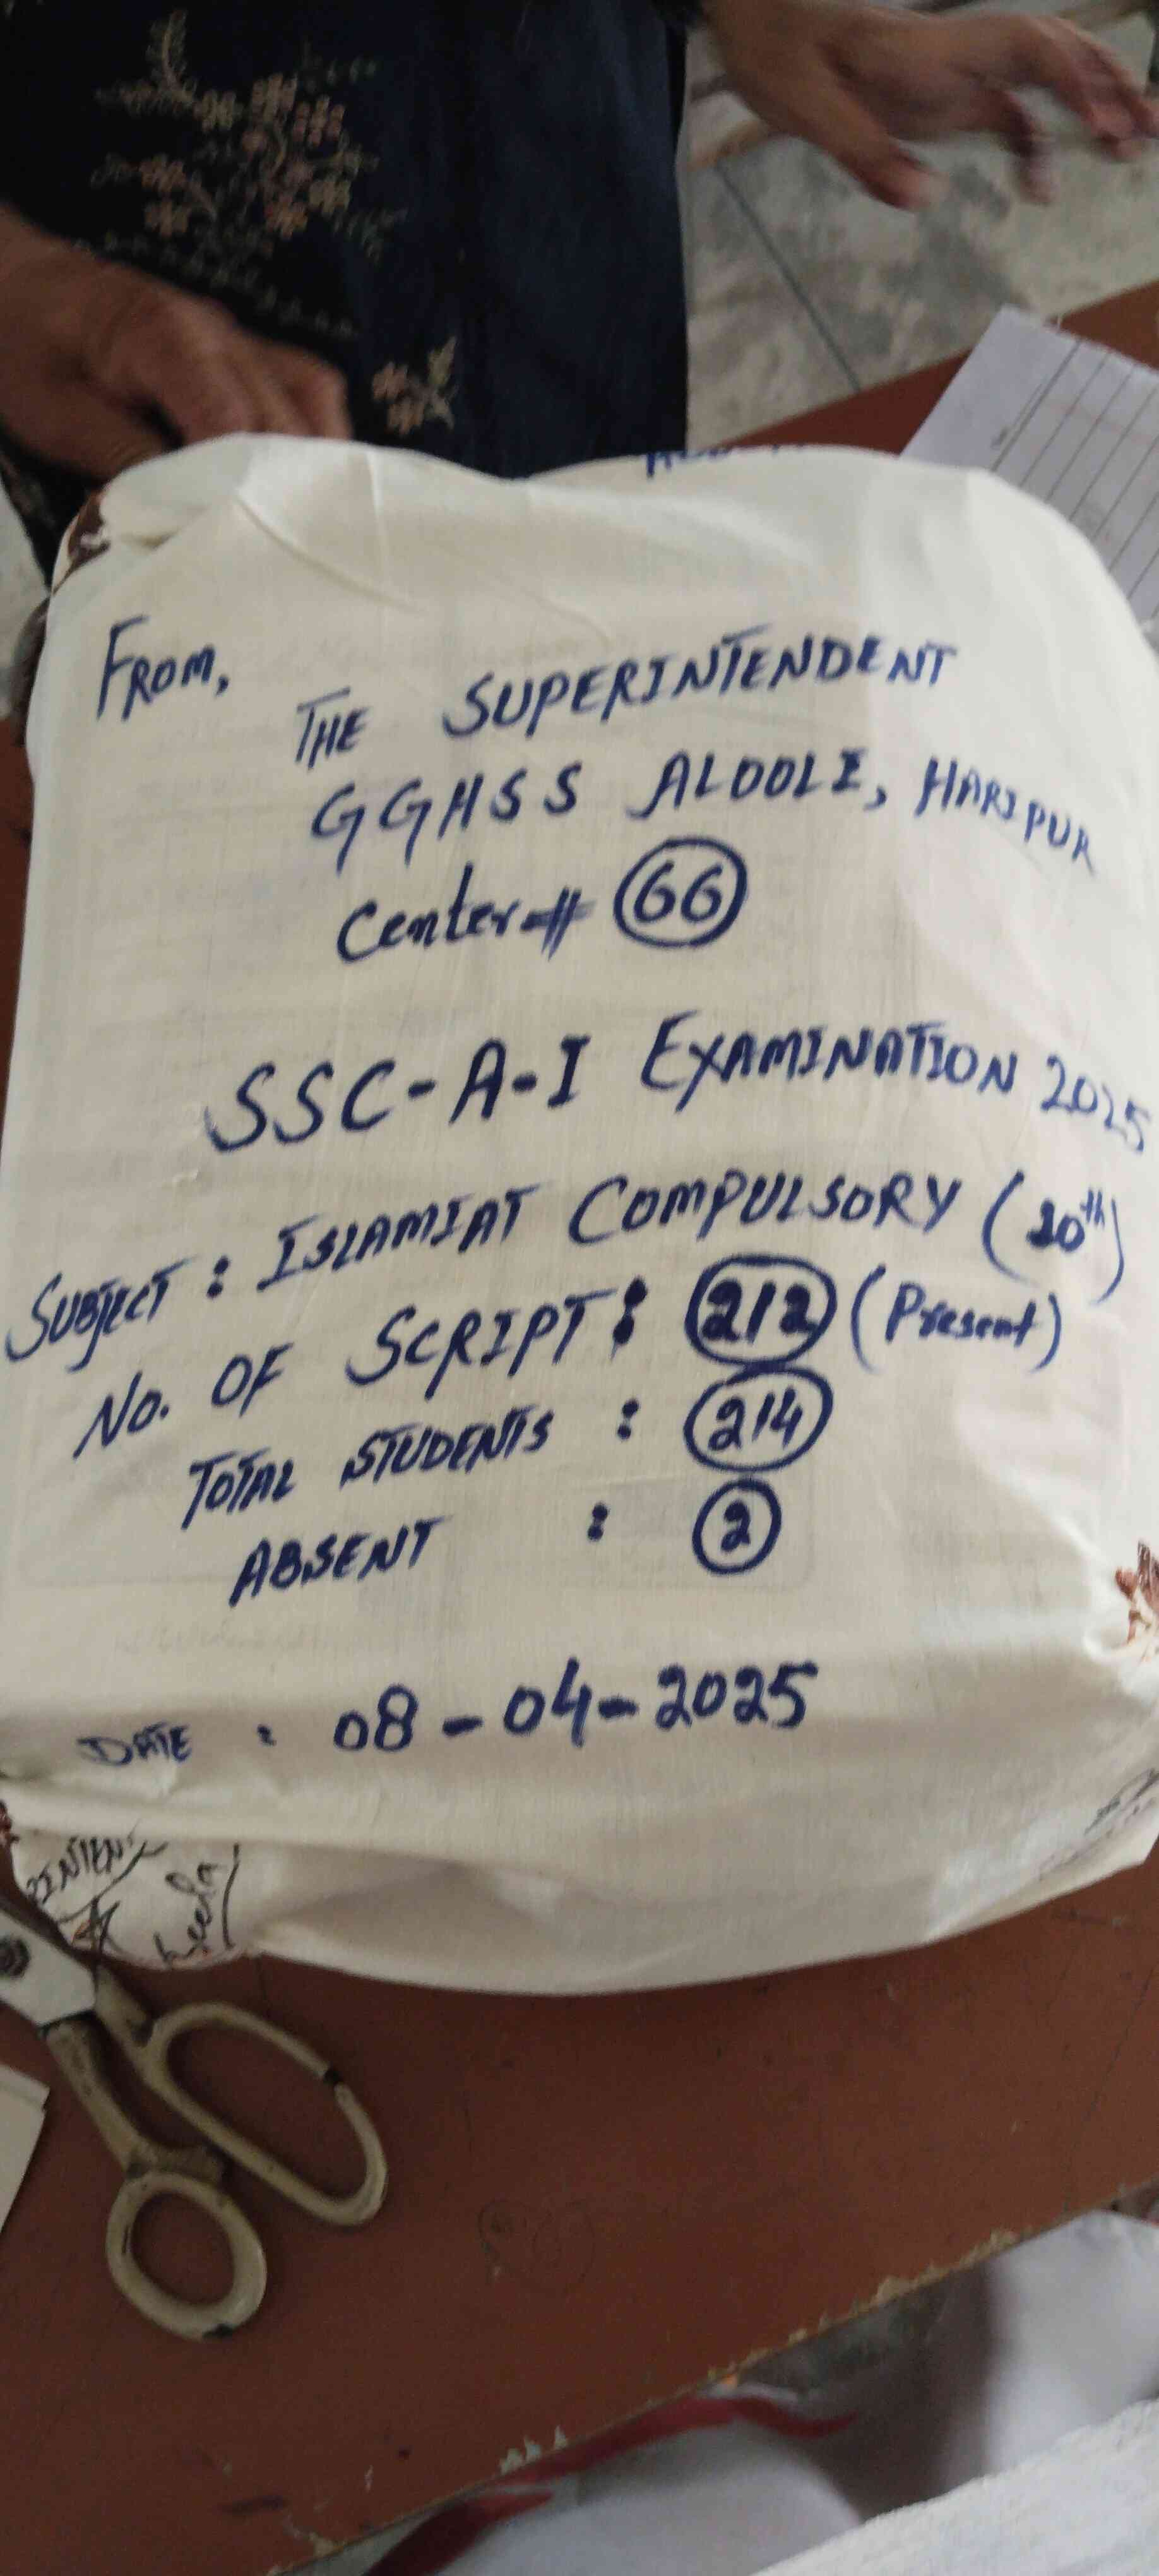 FROM,
THE SUPERINTENDENT
GGHSS ALOOLI, HARIPUR
Center # 66
SSC-A-I EXAMINATION 2025
SUBJECT : ISLAMIAT COMPULSORY (10th)
No. OF SCRIPT : 212 (Present)
TOTAL STUDENTS : 214
ABSENT : 2
DATE : 08-04-2025